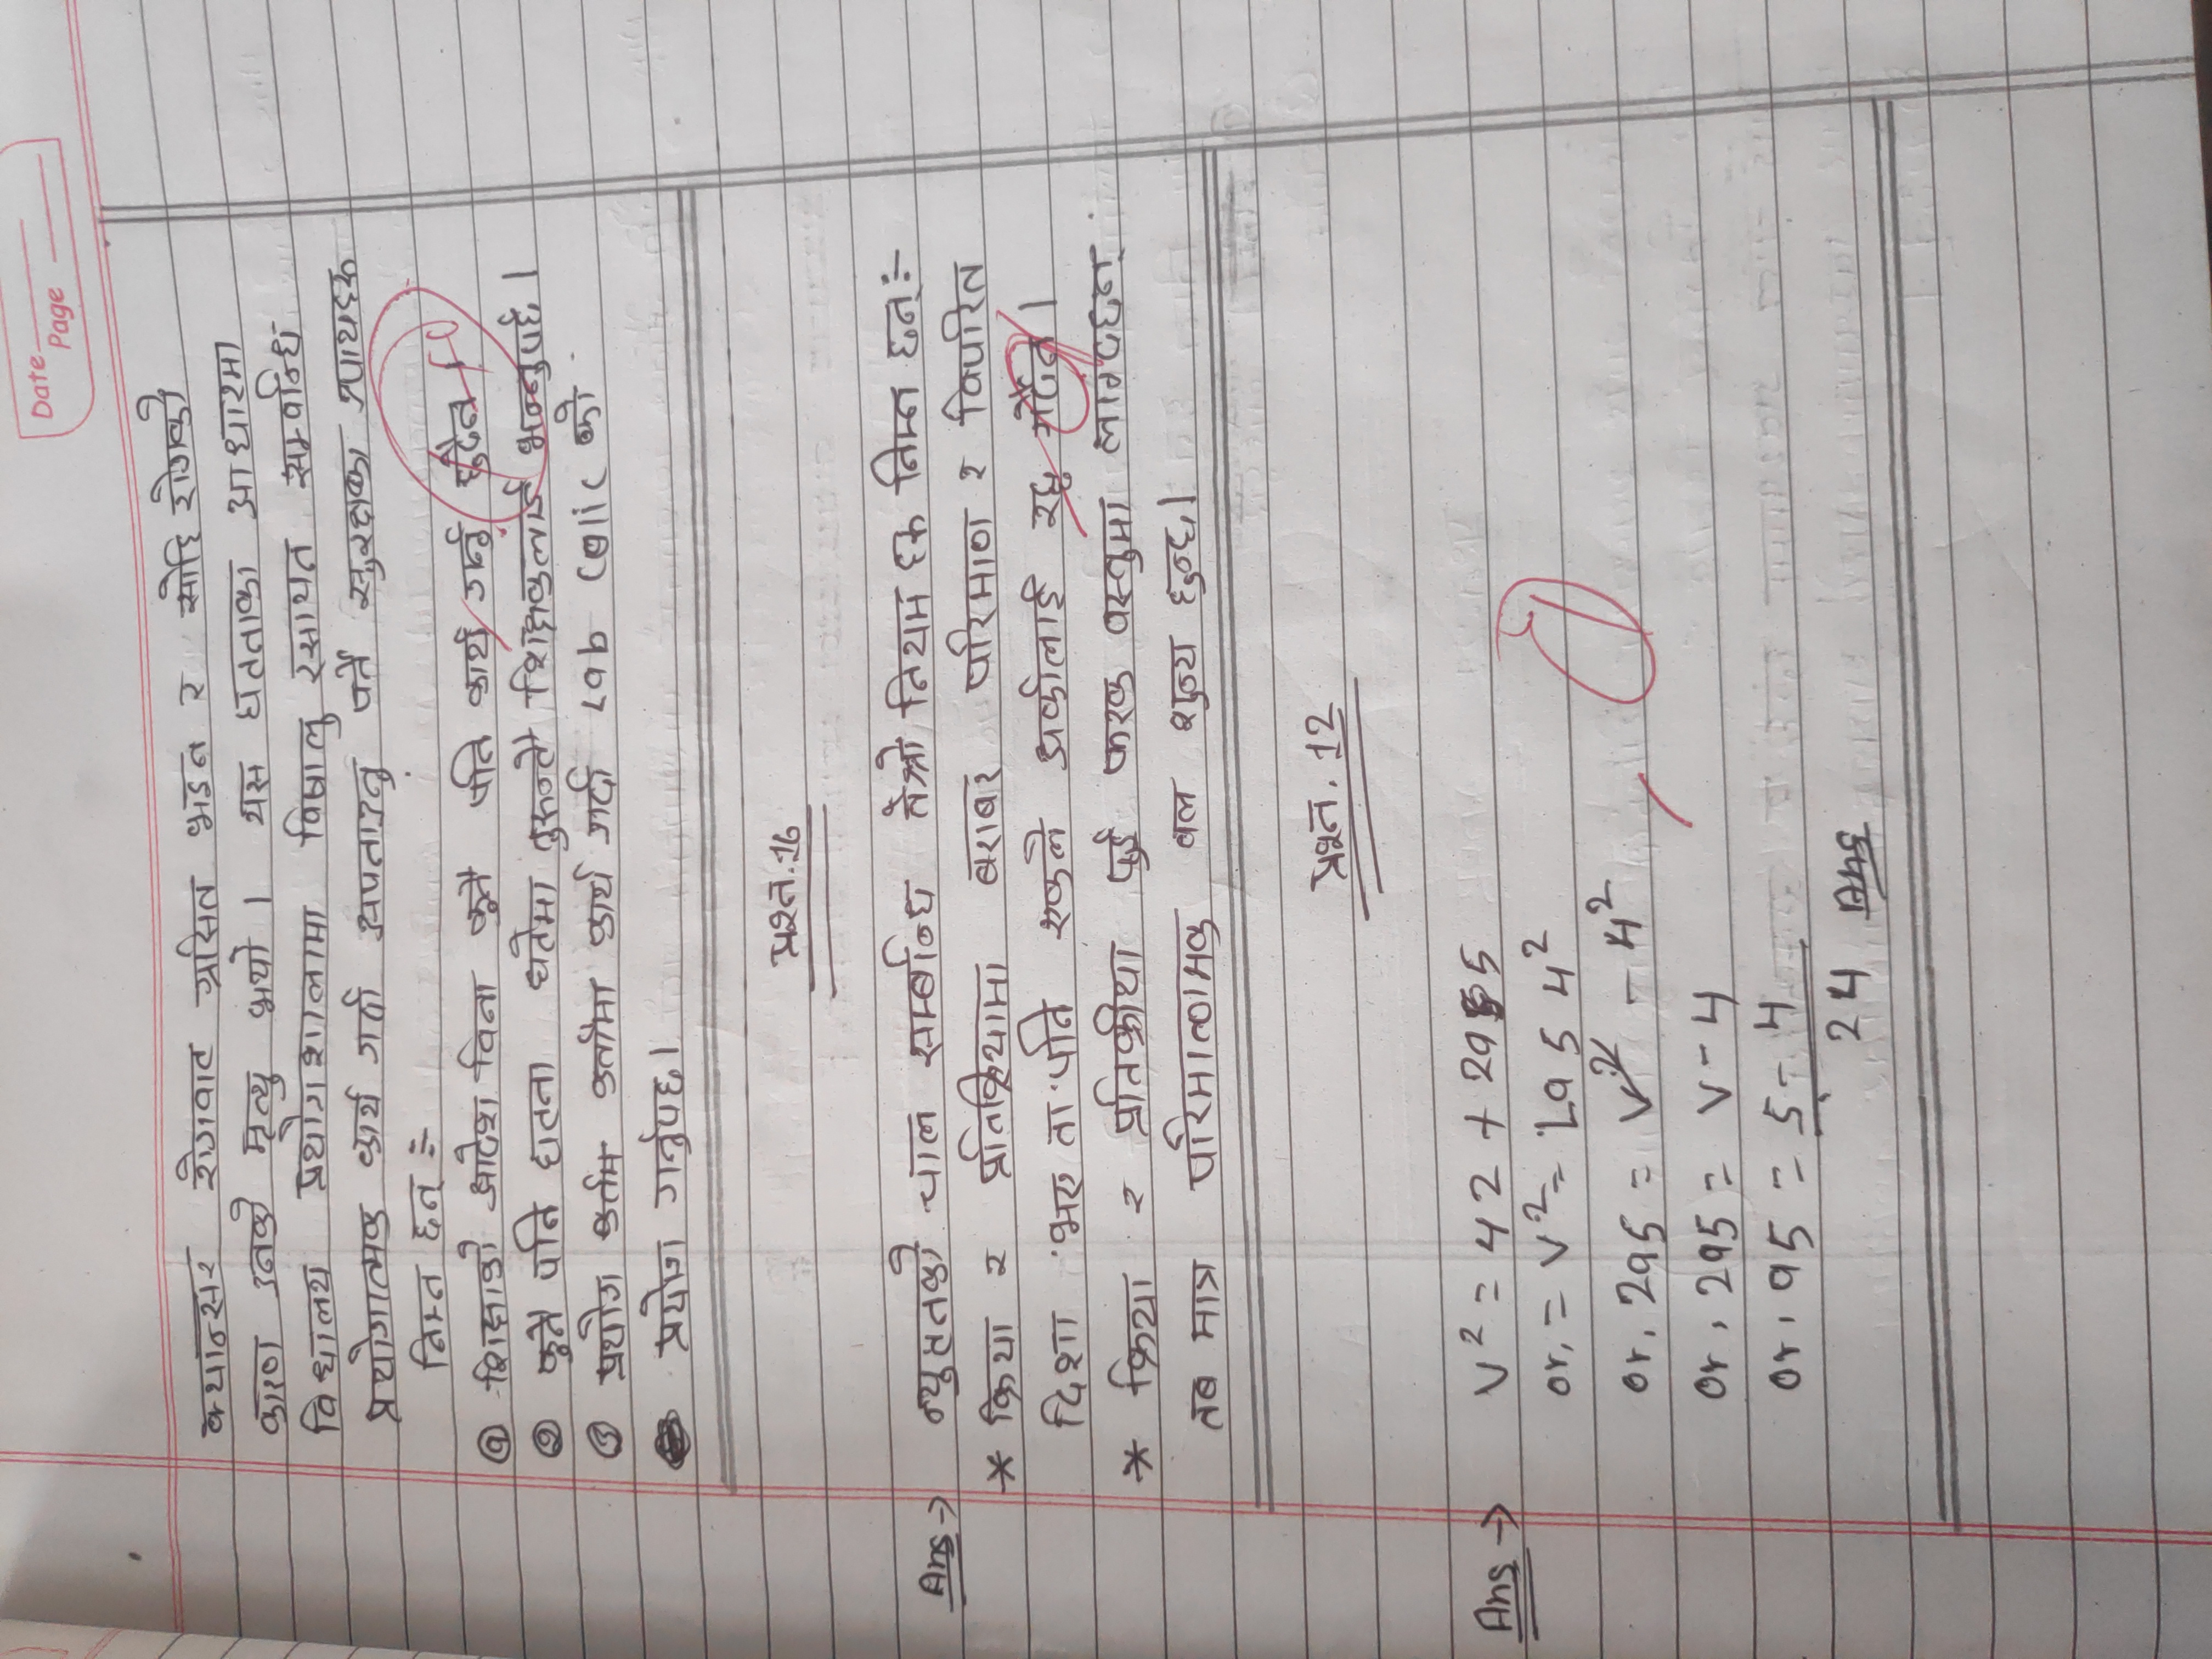 Date
Page
क्यान्सर रोगवाट ग्रसित भइन र सोहि रोगको
कारण उनको मृत्यु भयो । यस घटनाका आधारमा
विद्यालय प्रयोगशालामा विषालु रसायन सम्बन्धि
प्रयोगात्मक कार्य गर्दा अपनाउनु पर्ने सुरक्षाका उपायहरू
निम्न छन् :-
① शिक्षाको आदेश विना कुनै पनि कार्य गर्नु हुदैन ।
② कुनै पनि घटना घटेमा तुरुन्तै शिक्षकलाई भन्नुपर्छ ।
③ प्रयोग कार्य गर्दा Lab को
प्रयोग गर्नुपछ।
प्रश्न.16
Ans → न्युटनको चाल सम्बन्धि तेश्रो नियम हरू निम्न छन् :-
* क्रिया र प्रतिक्रियामा बराबर परिमाण र विपरित
दिशा भए ता पनि एकले अर्कालाई रद्द गर्दैन ।
* क्रिया र प्रतिक्रीया दुई फरक वस्तुमा लाग्दछन्
तब मात्र परिमाणात्मक वल शुन्य हुन्छ।
प्रश्न. 12
Ans → V² = 42 + 2955
or, = V² = 2as 4²
or, 2as = V² - 4²
or, 2as = V - 4
or, as = 5 - 4
24 Ans